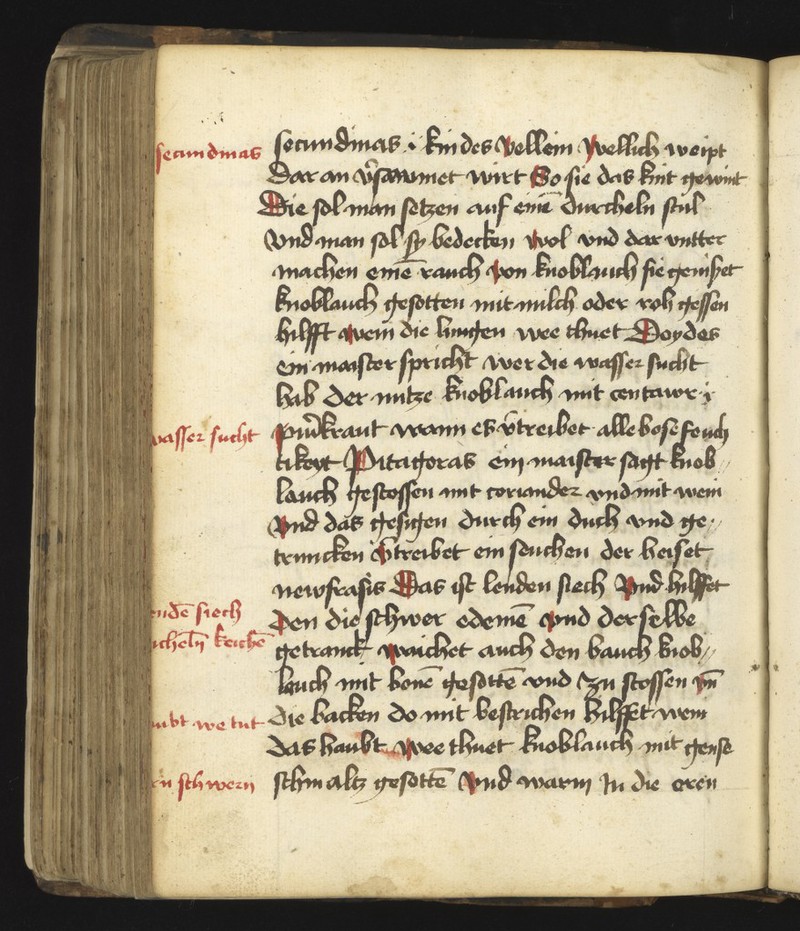 secundinas
secundinas · i · kindes vellein Wellich weipt
dar an v̉saumet wirt So sie das kint gewint
Die sol man setzen auf einē durcheln stul
Vnd man sol sy bedecken wol vnd dar vntter
machen einē rauch von knoblauch sie genißet
knoblauch gesotten mit milch oder roh gessen
hilfft wem die lungen wee thuet Doydes
ein maister spricht wer die wasser sucht
hab der nutze knoblauch mit centawr · i ·
wasser sucht
kraut wann es v̉treibet alle bose feuch
tikeyt Pitagoras ein maister sagt knob〃
lauch gestossen mit coriander vnd mit wein
Vnd das gesigen durch ein duch vnd ge〃
truncken v̉treibet ein seuchen der heiset
newfrasis Das ist lenden siech Vnd hilffet
endē siech
Den die schwer edemē vnd der selbe
ichelñ keichē
getranck waichet auch den bauch knob〃
lauch mit bonē gesottē vnd zu stossen vñ
aubt we tut
die backen do mit bestrichen hilfft wem
das haubt wee thuet knoblauch mit gense
en schwern
schmaltz gesottē Vnd warm In die oren